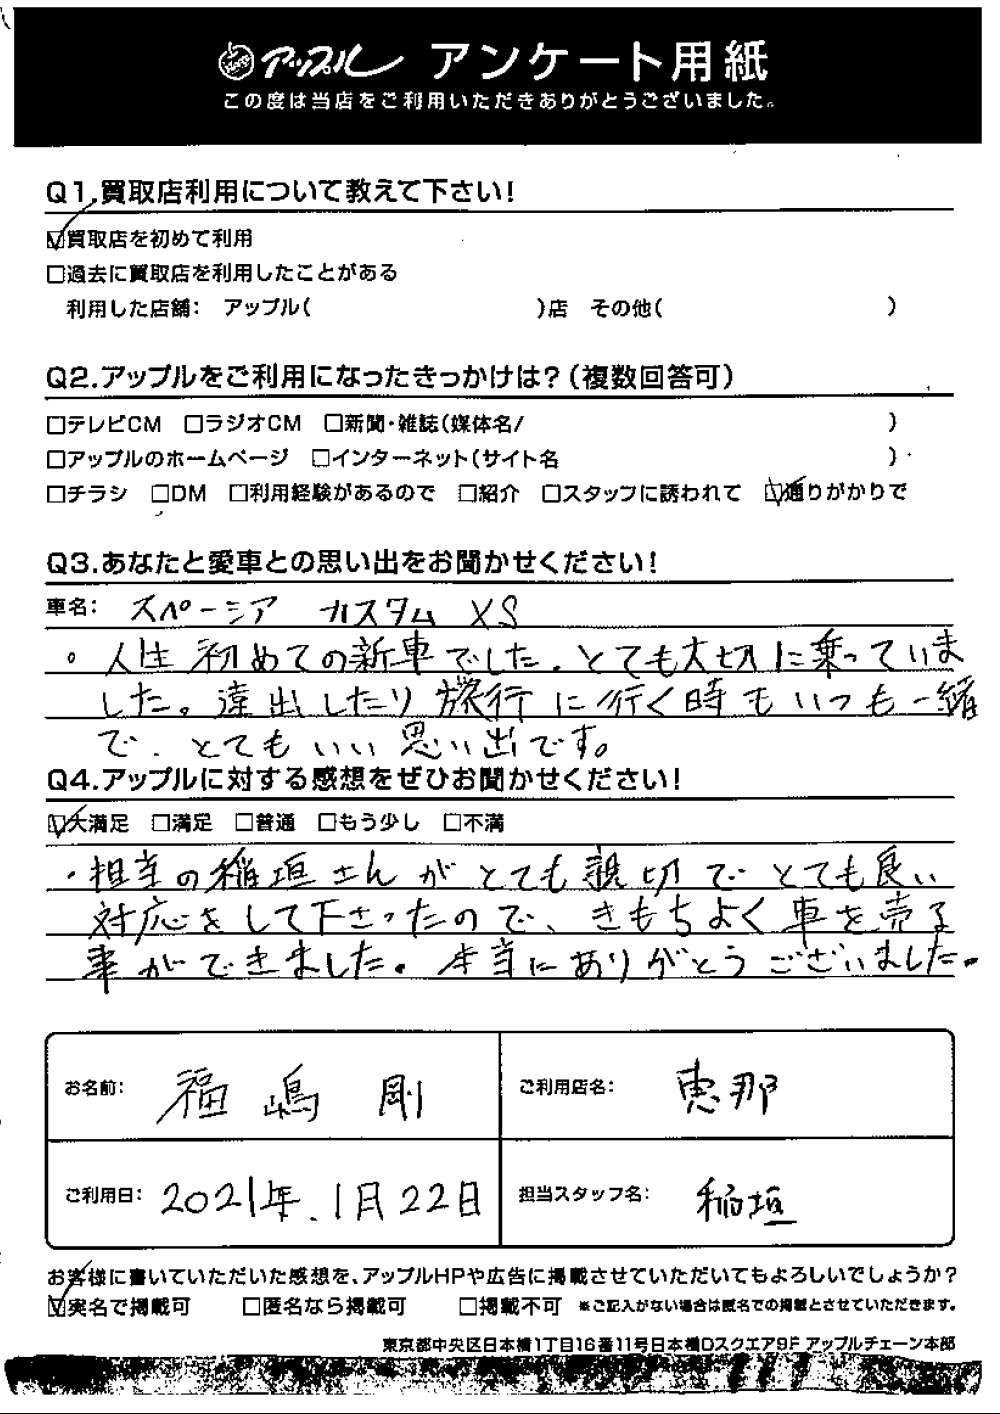 アップル アンケート用紙
この度は当店をご利用いただきありがとうございました。
Q1.買取店利用について教えて下さい!
☑買取店を初めて利用
□過去に買取店を利用したことがある
利用した店舗: アップル( )店 その他( )
Q2.アップルをご利用になったきっかけは?(複数回答可)
□テレビCM □ラジオCM □新聞・雑誌(媒体名/ )
□アップルのホームページ □インターネット(サイト名 )
□チラシ □DM □利用経験があるので □紹介 □スタッフに誘われて ☑通りがかりで
Q3.あなたと愛車との思い出をお聞かせください!
車名: スペーシア カスタム XS
。人生初めての新車でした。とても大切に乗っていま
した。遠出したり旅行に行く時もいつも一緒
で、とてもいい思い出です。
Q4.アップルに対する感想をぜひお聞かせください!
☑大満足 □満足 □普通 □もう少し □不満
・担当の稲垣さんがとても親切でとても良い
対応をして下さったので、きもちよく車を売る
事ができました。本当にありがとうございました。
お名前: 福嶋 剛
ご利用店名: 恵那
ご利用日: 2021年.1月22日
担当スタッフ名: 稲垣
お客様に書いていただいた感想を、アップルHPや広告に掲載させていただいてもよろしいでしょうか?
☑実名で掲載可 □匿名なら掲載可 □掲載不可 ※ご記入がない場合は匿名での掲載とさせていただきます。
東京都中央区日本橋1丁目16番11号日本橋Dスクエア9F アップルチェーン本部